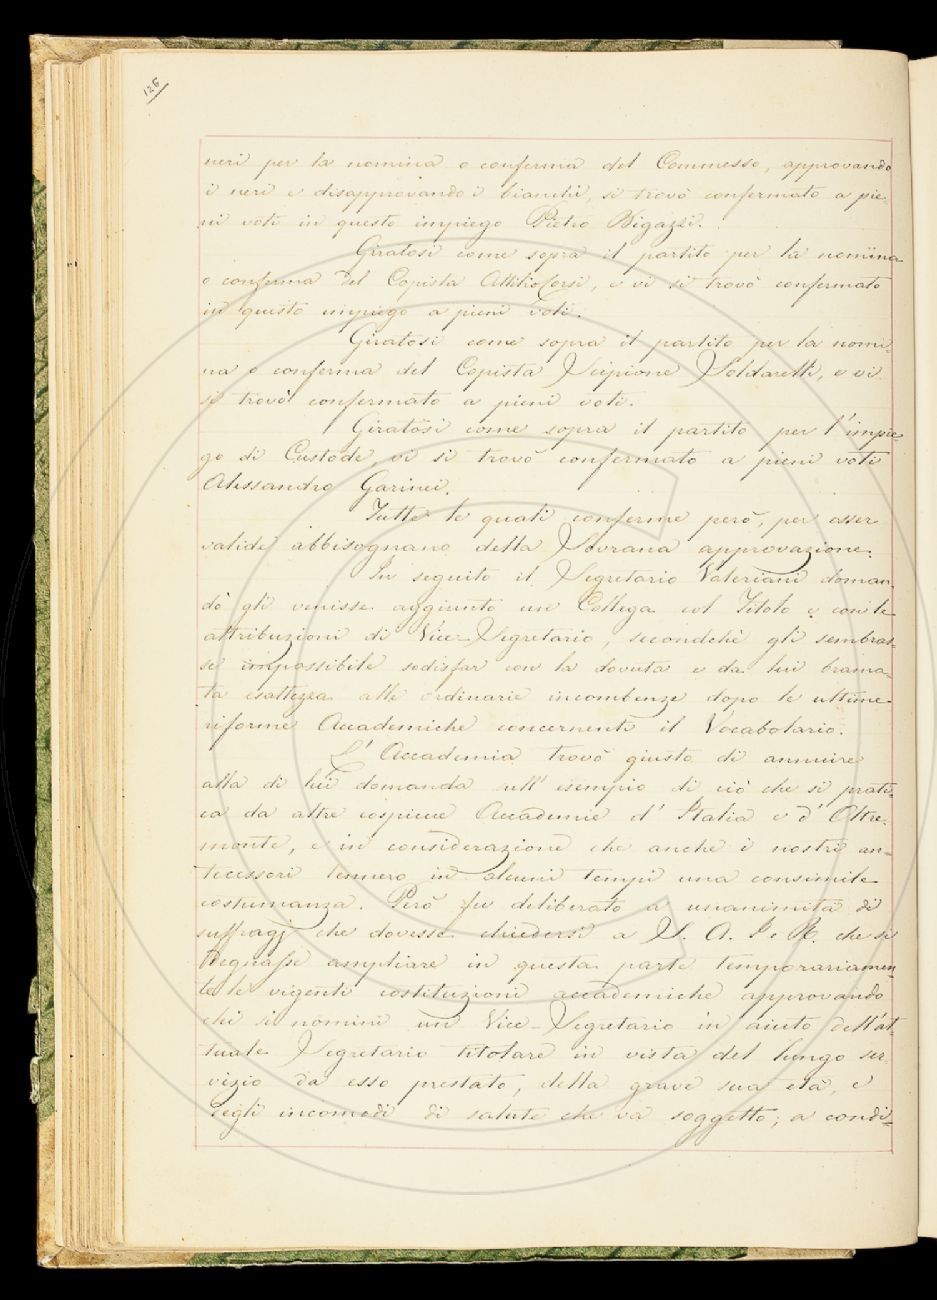 126
neri per la nomina o conferma del Commesso, approvando
i neri e disapprovando i bianchi, si trovò confermato a pie-
ni voti in questo impiego Pietro Bigazzi.
Giratosi come sopra il partito per la nomina
o conferma del Copista Attilio Corsi, e vi si trovò confermato
in questo impiego a pieni voti.
Giratosi come sopra il partito per la nomi-
na o conferma del Copista Scipione Soldaretti, e vi
si trovò confermato a pieni voti.
Giratosi come sopra il partito per l'impie-
go di Custode, vi si trovò confermato a pieni voti
Alessandro Garinei.
Tutte le quali conferme però, per esser
valide abbisognano della Sovrana approvazione.
In seguito il Segretario Valeriani doman-
dò gli venisse aggiunto un Collega col Titolo e con le
attribuzioni di Vice-Segretario, secondochè gli sembras-
se impossibile sodisfar con la dovuta e da lui brama-
ta esattezza alle ordinarie incombenze dopo le ultime
riforme Accademiche concernenti il Vocabolario.
L'Accademia trovò giusto di annuire
alla di lui domanda all'esempio di ciò che si prati-
ca da altre cospicue Accademie d'Italia e d'Oltre-
monte, e in considerazione che anche i nostri an-
tecessori tennero in alcuni tempi una consimile
costumanza. Però fu deliberato a unanimità di
suffragj che dovesse chiedersi a S. A. I. e R. che si
degnasse ampliare in questa parte temporariamen-
te le vigenti costituzioni accademiche approvando
che si nomini un Vice-Segretario in aiuto dell'at-
tuale Segretario titolare in vista del lungo ser-
vizio da esso prestato, della grave sua età, e
degli incomodi di salute che va soggetto; a condi-